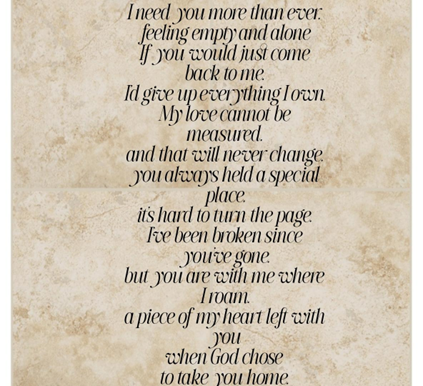 I need you more than ever.
feeling empty and alone
If you would just come
back to me.
I'd give up everything I own.
My love cannot be
measured.
and that will never change.
you always held a special
place.
it's hard to turn the page.
I've been broken since
you've gone.
but you are with me where
I roam.
a piece of my heart left with
you
when God chose
to take you home.